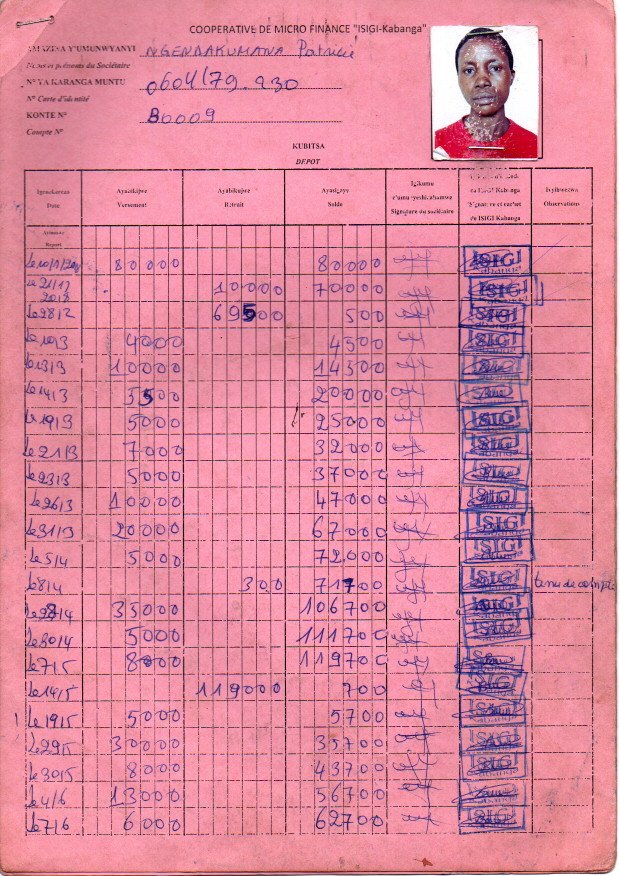 COOPERATIVE DE MICRO FINANCE "ISIGI-Kabanga"
AMAZINA Y'UMUNWYANYI NGENDAKUMANA Patricie
Noms et prénoms du Sociétaire
N° YA KARANGA MUNTU 0604/79.230
N° Carte d'identité
KONTE N° B0009
Compte N°
KUBITSA
DEPOT
Date Versement Retrait Solde Signature du sociétaire Signature et cachet du ISIGI Kabanga Observations
Report
80000 80000 ISIGI
le 21/2 2018 10000 70000 ISIGI
le 28/2 69500 500 ISIGI
le 10/3 4000 4500 ISIGI
le 13/3 10000 14500
le 14/3 5500 20000
le 19/3 5000 25000 ISIGI
le 21/3 7000 32000 ISIGI
le 23/3 5000 37000
le 26/3 10000 47000
le 31/3 20000 67000 ISIGI
le 5/4 5000 72000 ISIGI
le 8/4 300 71700 tenu de compte
le 28/4 35000 106700 ISIGI
le 30/4 5000 111700
le 7/5 8000 119700
le 14/5 119000 700
le 19/5 5000 5700
le 29/5 30000 35700
le 30/5 8000 43700
le 4/6 13000 56700
le 7/6 6000 62700